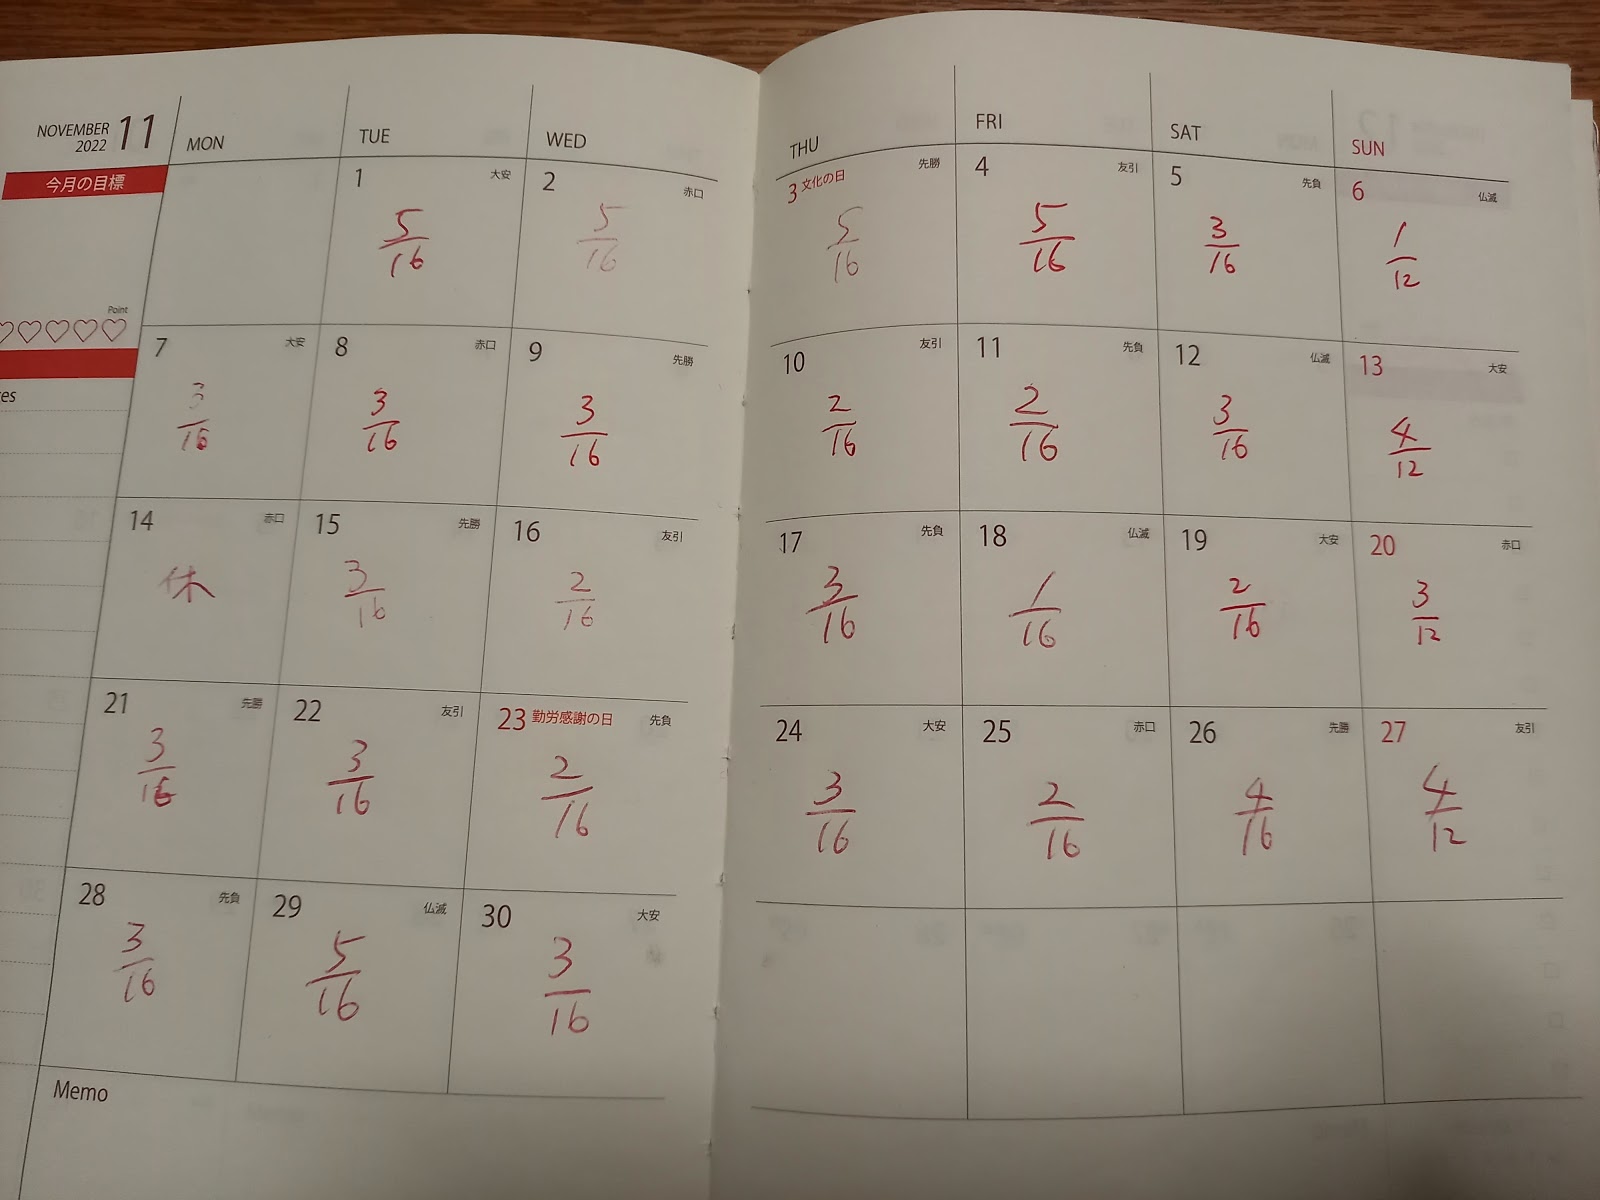 NOVEMBER 11
2022
今月の目標
Point
MON TUE WED THU FRI SAT SUN
1 大安 2 赤口 3 文化の日 先勝 4 友引 5 先負 6 仏滅
5/16 5/16 5/16 5/16 3/16 1/12
7 大安 8 赤口 9 先勝 10 友引 11 先負 12 仏滅 13 大安
3/16 3/16 3/16 2/16 2/16 3/16 4/12
14 赤口 15 先勝 16 友引 17 先負 18 仏滅 19 大安 20 赤口
休 3/16 2/16 3/16 1/16 2/16 3/12
21 先勝 22 友引 23 勤労感謝の日 先負 24 大安 25 赤口 26 先勝 27 友引
3/16 3/16 2/16 3/16 2/16 4/16 4/12
28 先負 29 仏滅 30 大安
3/16 5/16 3/16
Memo